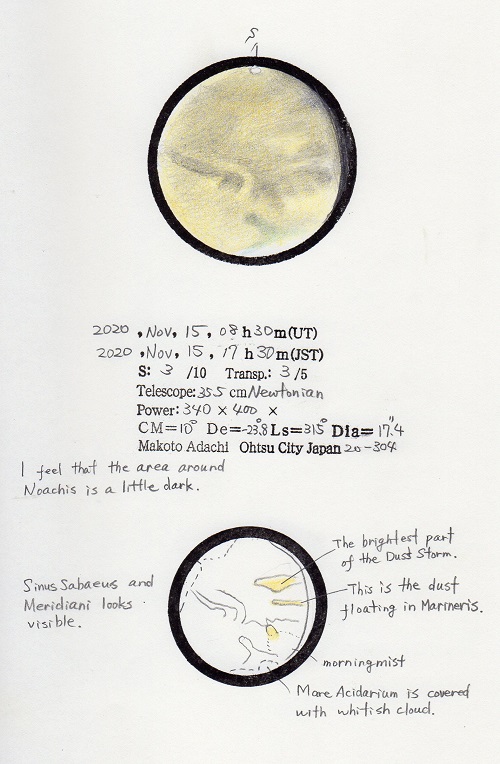 S
2020 , Nov, 15, 08 h 30 m (UT)
2020 , Nov, 15, 17 h 30 m (JST)
S: 3 /10 Transp.: 3 /5
Telescope: 355 cm Newtonian
Power: 340 × 400 ×
CM=10° De=-23.8° Ls=315° Dia=17.4"
Makoto Adachi Ohtsu City Japan 20-304
I feel that the area around
Noachis is a little dark.
The brightest part
of the Dust Storm.
Sinus Sabaeus and
Meridiani looks
visible.
This is the dust
floating in Marineris.
morning mist
Mare Acidarium is covered
with whitish cloud.